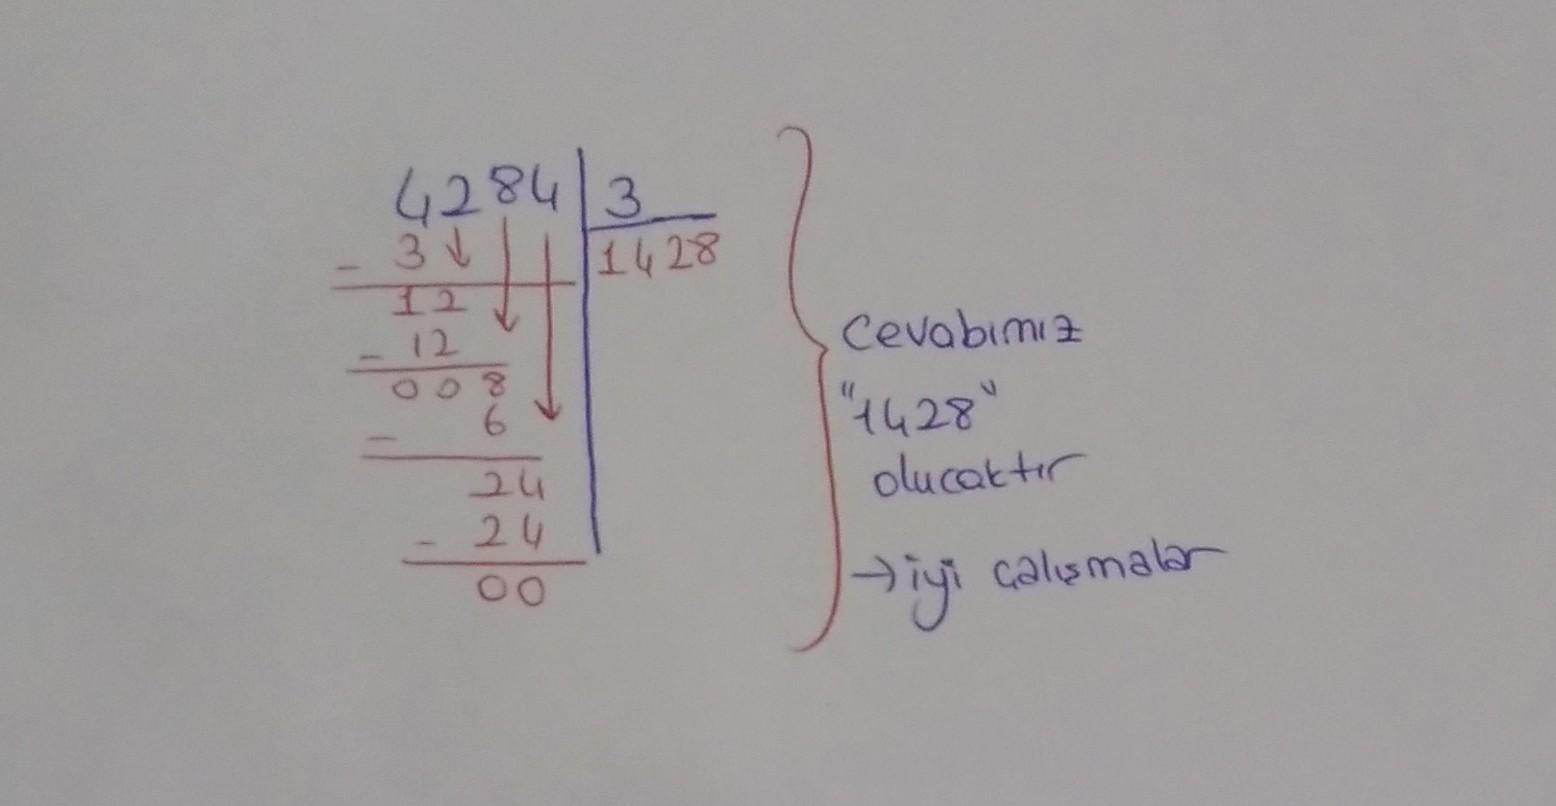 4284 3
- 3 1428
12
- 12
008
- 6
24
- 24
00
cevabımız
"1428"
olucaktır
→ iyi çalışmalar